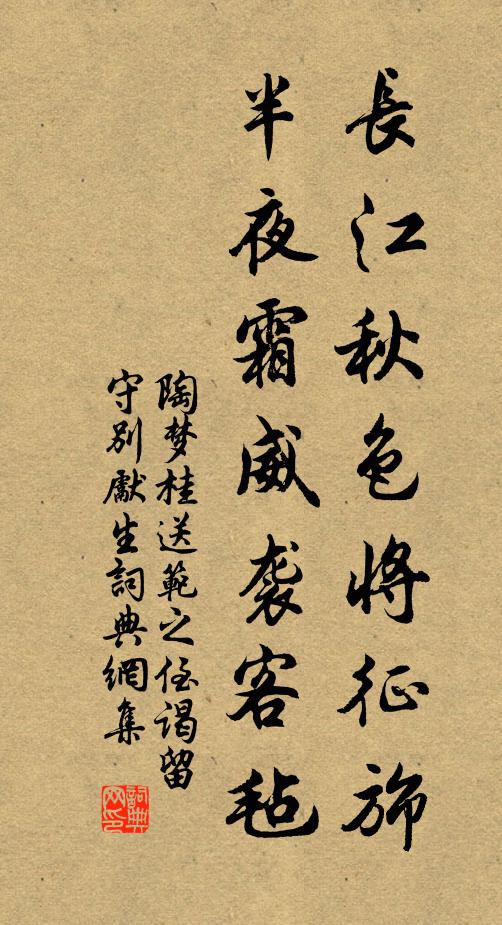 長江秋色將征旆
半夜霜威袭客毡
陶梦桂送範之侄謁留
守別獻生詞典網集
詞典
网印